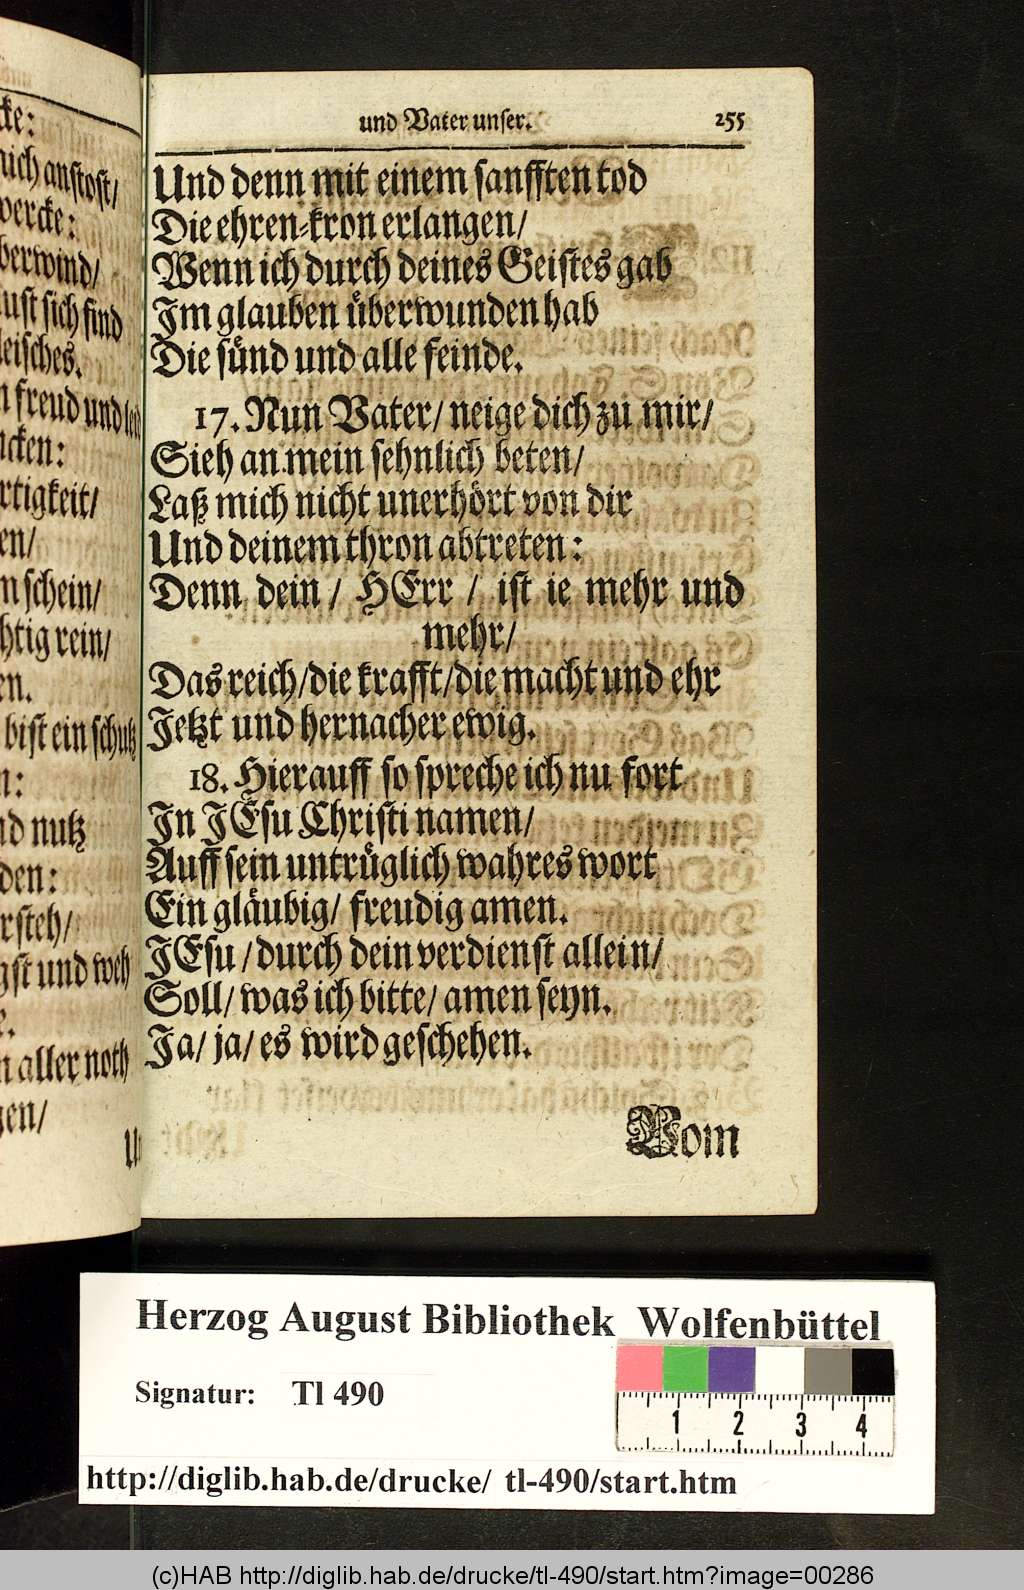 cke:
mich anstost/
wercke:
berwind/
lust sich find
leisches.
n freud und leid
ncken:
rtigkeit/
en/
n schein/
htig rein/
en.
bist ein schutz
n:
nd nutz
den:
rsteh/
gst und weh
e.
n aller noth
gen/
Un
und Vater unser. 255
Und denn mit einem sanfften tod
Die ehren-kron erlangen/
Wenn ich durch deines Geistes gab
Im glauben überwunden hab
Die sünd und alle feinde.
17. Nun Vater/ neige dich zu mir/
Sieh an mein sehnlich beten/
Laß mich nicht unerhört von dir
Und deinem thron abtreten:
Denn dein / HErr / ist ie mehr und
mehr/
Das reich/die krafft/die macht und ehr
Jetzt und hernacher ewig.
18. Hierauff so spreche ich nu fort
In JEsu Christi namen/
Auff sein untrüglich wahres wort
Ein gläubig/ freudig amen.
JEsu /durch dein verdienst allein/
Soll/ was ich bitte/ amen seyn.
Ja/ ja/ es wird geschehen.
Vom
Herzog August Bibliothek Wolfenbüttel
Signatur: Tl 490
1 2 3 4
http://diglib.hab.de/drucke/ tl-490/start.htm
(c)HAB http://diglib.hab.de/drucke/tl-490/start.htm?image=00286